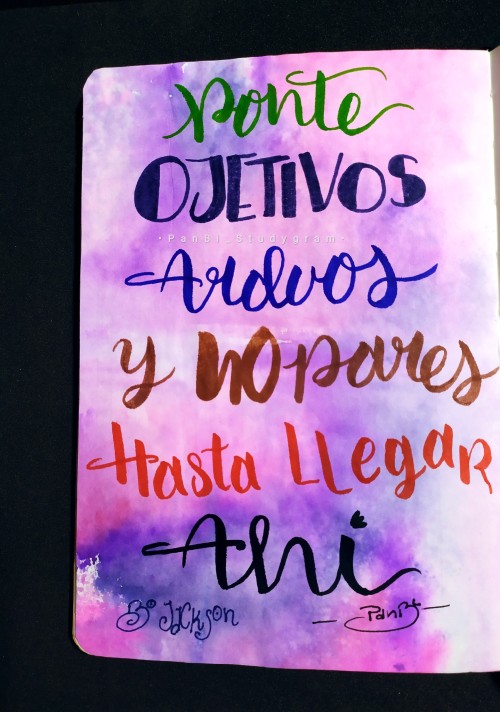 Ponte
OJETIVOS
•PanBl_Studygram•
Arduos
y no pares
Hasta LLegaR
Ahi
Bo Jackson
PanBl